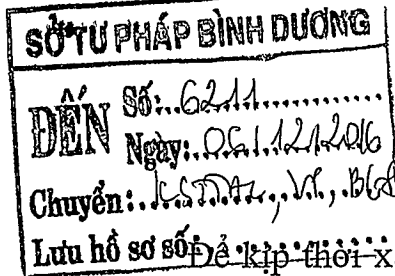 SỞ TƯ PHÁP BÌNH DƯƠNG
ĐẾN
Số: 6211
Ngày: 06/12/2016
Chuyển:
Lưu hồ sơ số:
Để kịp thời x